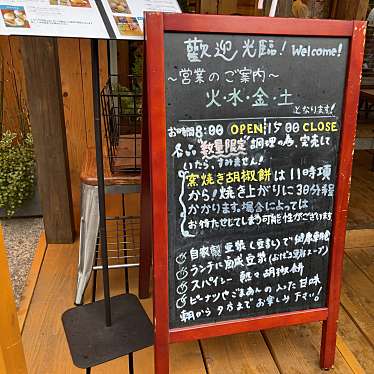 歡迎光臨! Welcome!
~営業のご案内~
火・水・金・土
となります!
お時間 8:00 OPEN 15:00 CLOSE
各品 数量限定 調理の為、完売して
いたら、すみません!
窯焼き胡椒餅は11時頃
から!焼き上がりに30分程
かかります。場合によっては
お待たせしてしまう可能性がございます
自家製 豆漿(豆乳)で健康
ランチに鹹豆漿
スパイシー 熱々胡椒餅
ピーナツやごまあんの入った甘味
朝から夕方までお楽しみ下さい!!